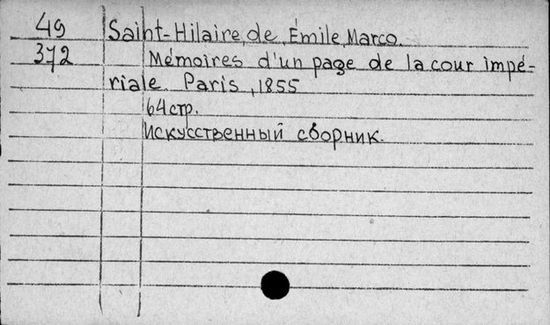 49 Saint-Hilaire, de, Émile Marco.
372 Mémoires d'un page de la cour impé-
riale. Paris, 1855
64 стр.
Искусственный сборник.